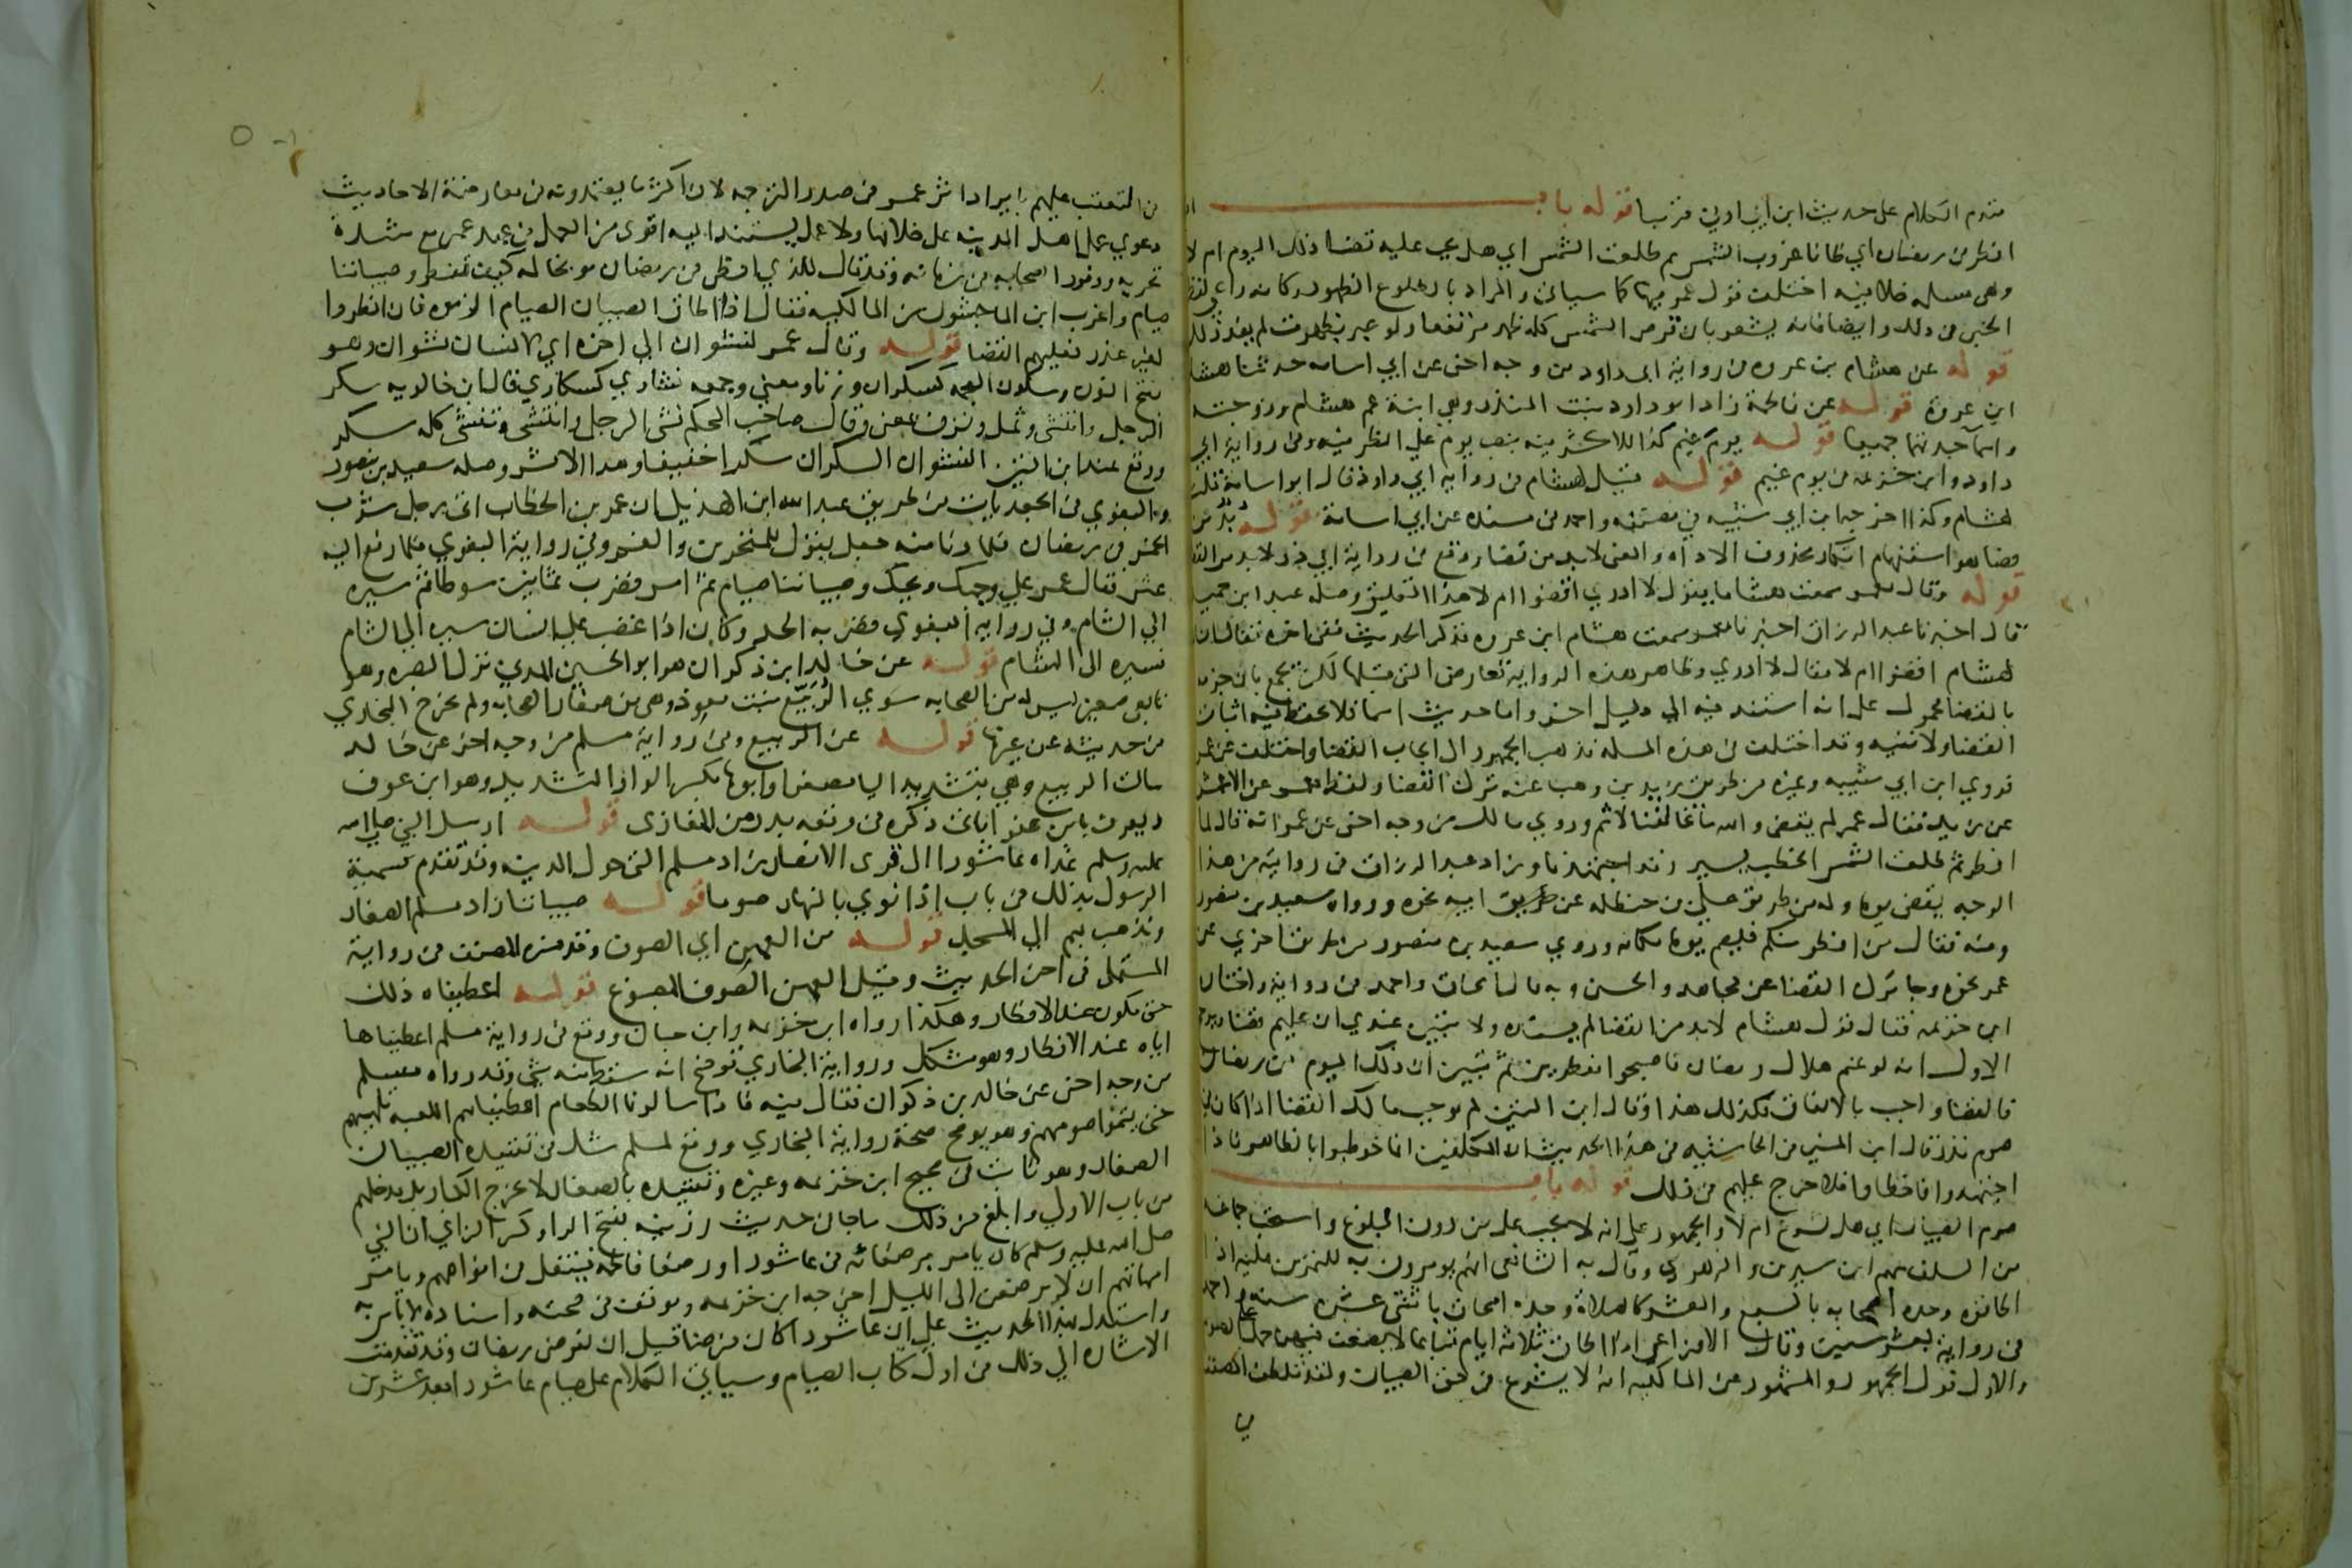 تقدم الكلام على حديث ابن ابي اوفى قريبا قوله باب اذا
افطر في رمضان اي ظانا غروب الشمس ثم طلعت الشمس اي هل يجب عليه قضا ذلك اليوم ام لا
وهي مسله خلافية اختلف قول عمر فيها كما سياتي والمراد بالطلوع الظهور وكانه راعى لفظ
الخبر في ذلك وايضا فانه يشعر بان قرص الشمس كله ظهر مرتفعا ولو عبر بظهرت لم يفد ذلك
قوله عن هشام بن عروه في رواية ابى داود من وجه اخر عن ابي اسامه حدثنا هشام
ابن عروة قوله عن فاطمة زاد ابو داود بنت المنذر وهي ابنة عم هشام وزوجته
واسما جدتهما جميعا قوله يوم غيم كذا للاكثر فيه بنصب يوم على الظرفيه وفي رواية ابي
داود وابن خزيمه في يوم غيم قوله قيل لهشام في رواية ابي داود قال ابو اسامة قلت
لهشام وكذا اخرجه ابن ابي شيبه في مصنفه واحمد في مسنده عن ابي اسامة قوله بد من
قضا هو استفهام انكار محذوف الاداه والمعنى لابد من قضا ووقع في رواية ابي ذر لا بد من القضا
قوله وقال معمر سمعت هشاما يقول لا ادري اقضوا ام لا هذا التعليق وصله عبد ابن حميد
قال اخبرنا عبد الرزاق اخبرنا معمر سمعت هشام ابن عروه فذكر الحديث وفي اخره فقال انسان
لهشام اقضوا ام لا فقال لا ادري وظاهر هذه الرواية تعارض التي قبلها لكن يجمع بان جزمه
بالقضا محمول على انه استند فيه الى دليل اخر واما حديث اسما فلا يحفظ فيه اثبات
القضا ولا نفيه وقد اختلف في هذه المسله فذهب الجمهور الى ايجاب القضا واختلف عن عمر
فروي ابن ابي شيبه وغيره من طريق زيد بن وهب عنه ترك القضا ولفظ معمر عن الاعمش
عن زيد فقال عمر لم يقض والله ما تجانفنا لاثم وروى مالك من وجه اخر عن عمر انه قال لما
افطر ثم طلعت الشمس الخطب يسير وقد اجتهدنا وزاد عبد الرزاق في روايته من هذا
الوجه يقضي يوما وله من طريق علي بن حنظله عن ابيه نحوه ورواه سعيد بن منصور
وفيه فقال من افطر منكم فليصم يوما مكانه وروي سعيد بن منصور من طريق اخري عن
عمر نحوه وجا ترك القضا عن مجاهد والحسن وبه قال اسحاق واحمد في رواية واختاره
ابن خزيمه فقال قول هشام لابد من القضا لم يسنده ولا يتبين عندي ان عليهم قضا ويرجح
الاول انه لو غم هلال رمضان فاصبحوا مفطرين ثم تبين ان ذلك اليوم من رمضان
فالقضا واجب بالاتفاق فكذلك هذا وقال ابن التين لم يوجب مالك القضا اذا كان في
صوم نذر قال ابن المنير في الحاشيه في هذا الحديث ان المكلفين انما خوطبوا بالظاهر فاذا
اجتهدوا فاخطاوا فلا حرج عليهم في ذلك قوله باب
صوم الصبيان اي هل يشرع ام لا والجمهور على انه لا يجب على من دون البلوغ واستحب جماعه
من السلف منهم ابن سيرين والزهري وقال به الشافعي انهم يومرون به للتمرين عليه اذا
اطاقوه وحده اصحابه بالسبع والعشر كالصلاة وحده اسحاق باثنتي عشره سنه واحمد
في رواية بعشر سنين وقال الاوزاعي اذا اطاق ثلاثة ايام تباعا لا يضعف فيهن حمل على الصوم
والاول قول الجمهور والمشهور عن المالكيه انه لا يشرع في حق الصبيان ولقد تلطف المصنف
في
في التعقب عليهم بايراد اثر عمر في صدر الترجمه لان اكثر ما يعتمدونه في معارضة الاحاديث
دعوي عمل اهل المدينه على خلافها ولا عمل يستند اليه اقوى من العمل في عهد عمر مع شدة
تحريه ووفور الصحابه في زمانه وقد قال للذي افطر في رمضان موبخا له كيف تفطر وصبياننا
صيام واغرب ابن الماجشون من المالكيه فقال اذا اطاق الصبيان الصيام الزموه فان افطروا
لغير عذر فعليهم القضا قوله وقال عمر لنشوان الى اخره اي لانسان نشوان وهو
بفتح النون وسكون المعجمه كسكران وزنا ومعنى وجمعه نشاوي كسكاري قال ابن خالويه سكر
الرجل وانتشى وثمل ونزف بمعنى وقال صاحب المحكم نشى الرجل وانتشى وتنشى كله سكر
ووقع عند ابن التين النشوان السكران سكرا خفيفا وهذا الاثر وصله سعيد بن منصور
والبغوي في الجعديات من طريق عبد الله ابن الهذيل ان عمر بن الخطاب اتى برجل شرب
الخمر في رمضان فلما دنا منه جعل يقول للمنخرين والفم وفي رواية البغوي فلما رفع اليه
عثر فقال عمر على وجهك ويحك وصبياننا صيام ثم امر فضرب ثمانين سوطا ثم سيره
الى الشام وفي رواية البغوي فضربه الحد وكان اذا غضب على انسان سيره الى الشام
فسيره الى الشام قوله عن خالد ابن ذكوان هو ابو الحسين المدني نزل البصره وهو
تابعي صغير ليس له من الصحابه سوي الربيع بنت معوذ وهي من صغار الصحابه ولم يخرج البخاري
من حديثه عن غيرها قوله عن الربيع وفي رواية مسلم من وجه اخر عن خالد
سالت الربيع وهي بتشديد اليا مصغرا وابوها بكسر الواو والتشديد وهو ابن عوف
ويعرف بابن عفرا ياتي ذكره في وقعه بدر من المغازي قوله ارسل النبي صلى الله
عليه وسلم غداه عاشورا الى قرى الانصار زاد مسلم التي حول المدينه وقد تقدم تسمية
الرسول بذلك في باب اذا نوي بالنهار صوما قوله صبياننا زاد مسلم الصغار
ونذهب بهم الى المسجد قوله من العهن اي الصوف وقد فسره المصنف في رواية
المستملى في اخر الحديث وقيل العهن الصوف المصبوغ قوله اعطيناه ذلك
حتى يكون عند الافطار وهكذا رواه ابن خزيمه وابن حبان ووقع في رواية مسلم اعطيناها
اياه عند الافطار وهو مشكل ورواية البخاري توضح انه سقط منه شي وقد رواه مسلم
من وجه اخر عن خالد بن ذكوان فقال فيه فاذا سالونا الطعام اعطيناهم اللعبه تلهيهم
حتى يتموا صومهم وهو يوضح صحة رواية البخاري ووقع لمسلم شك في تقييده الصبيان
الصغار وهو ثابت في صحيح ابن خزيمه وغيره وتقييده بالصغار لا يخرج الكبار بل يدخلهم
من باب الاولى وابلغ من ذلك ما جا في حديث رزينه بفتح الرا وكسر الزاي ان النبي
صلى الله عليه وسلم كان يامر برضعائه في عاشورا ورضعا فاطمه فيتفل في افواههم ويامر
امهاتهم ان لا يرضعن الى الليل اخرجه ابن خزيمه وتوقف في صحته واسناده لا باس به
واستدل بهذا الحديث على ان عاشورا كان فرضا قبل ان يفرض رمضان وقد تقدمت
الاشاره الى ذلك في اول كتاب الصيام وسياتي الكلام على صيام عاشورا بعد عشرين